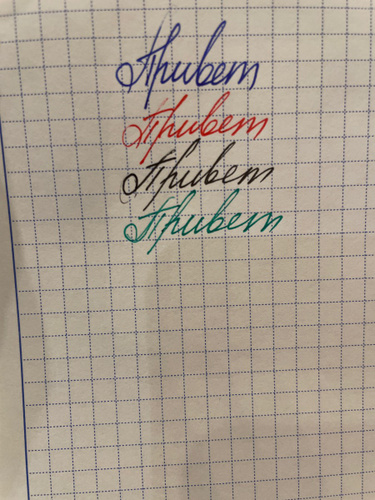 Привет
Привет
Привет
Привет